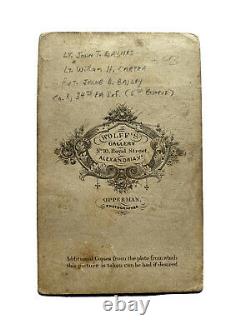 Lt. John T. Haynes
Lt. William H. Carter
Sgt. Jacob B. Bailey
WOLFF'S
GALLERY
No. 10, Royal Street,
ALEXANDRIA Va
OPPERMAN,
Additional Copies from the plate from which
this picture is taken can be had if desired